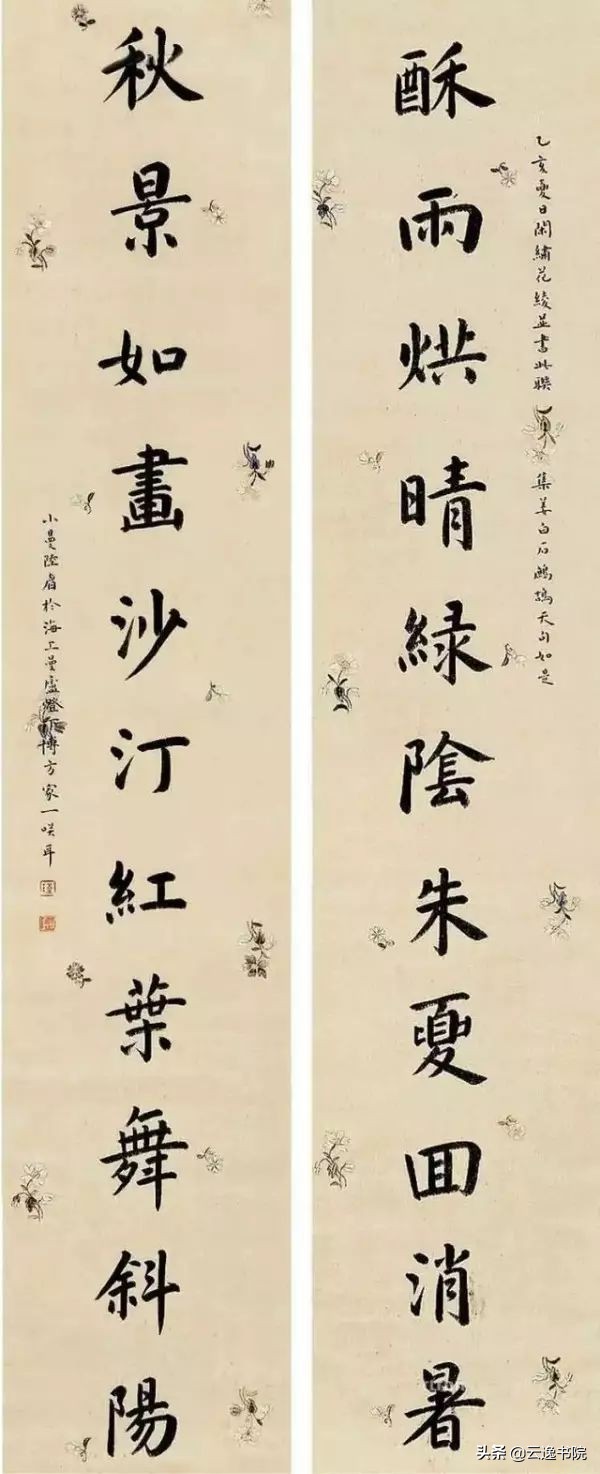 乙亥夏日閑繡花綾並書此聯 集姜白石鷓鴣天句如是
酥雨烘晴緑陰朱夏囬消暑
秋景如畫沙汀紅葉舞斜陽
小曼陸眉於海上曼盧燈下博方家一咲耳
头条 @云逸书院